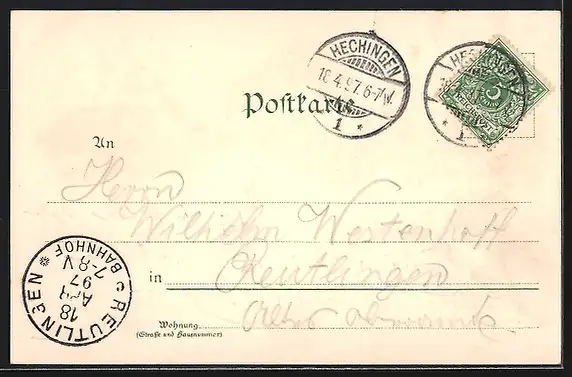 HECHINGEN
18.4.97.6-7N.
* 1 *
HECHINGEN
* 1 *
Postkarte
An
Herrn
Wilhelm Westenhoff
in Reutlingen
Wohnung
(Straße und Hausnummer)
REUTLINGEN BAHNHOF
18
Apr
97
7-8 V
C